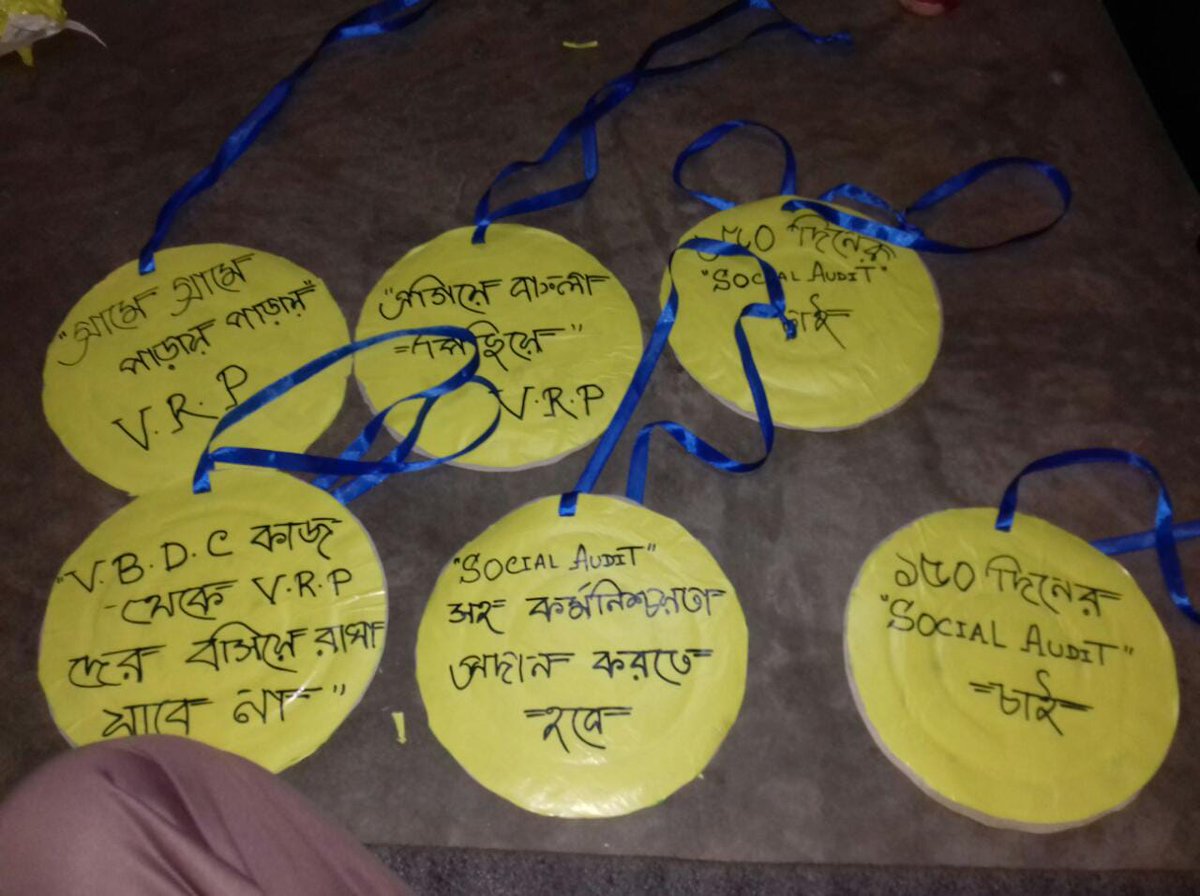 "গ্রামে গ্রামে
পাড়ায় পাড়ায়"
V.R.P
"এগিয়ে বাংলা
পিছিয়ে"
V.R.P
১৫০ দিনের
"SOCIAL AUDIT"
চাই
"V.B.D.C কাজ
থেকে V.R.P
দের বসিয়ে রাখা
যাবে না"
"SOCIAL AUDIT"
সহ কর্মনিশ্চয়তা
প্রদান করতে
হবে
১৫০ দিনের
"SOCIAL AUDIT"
চাই